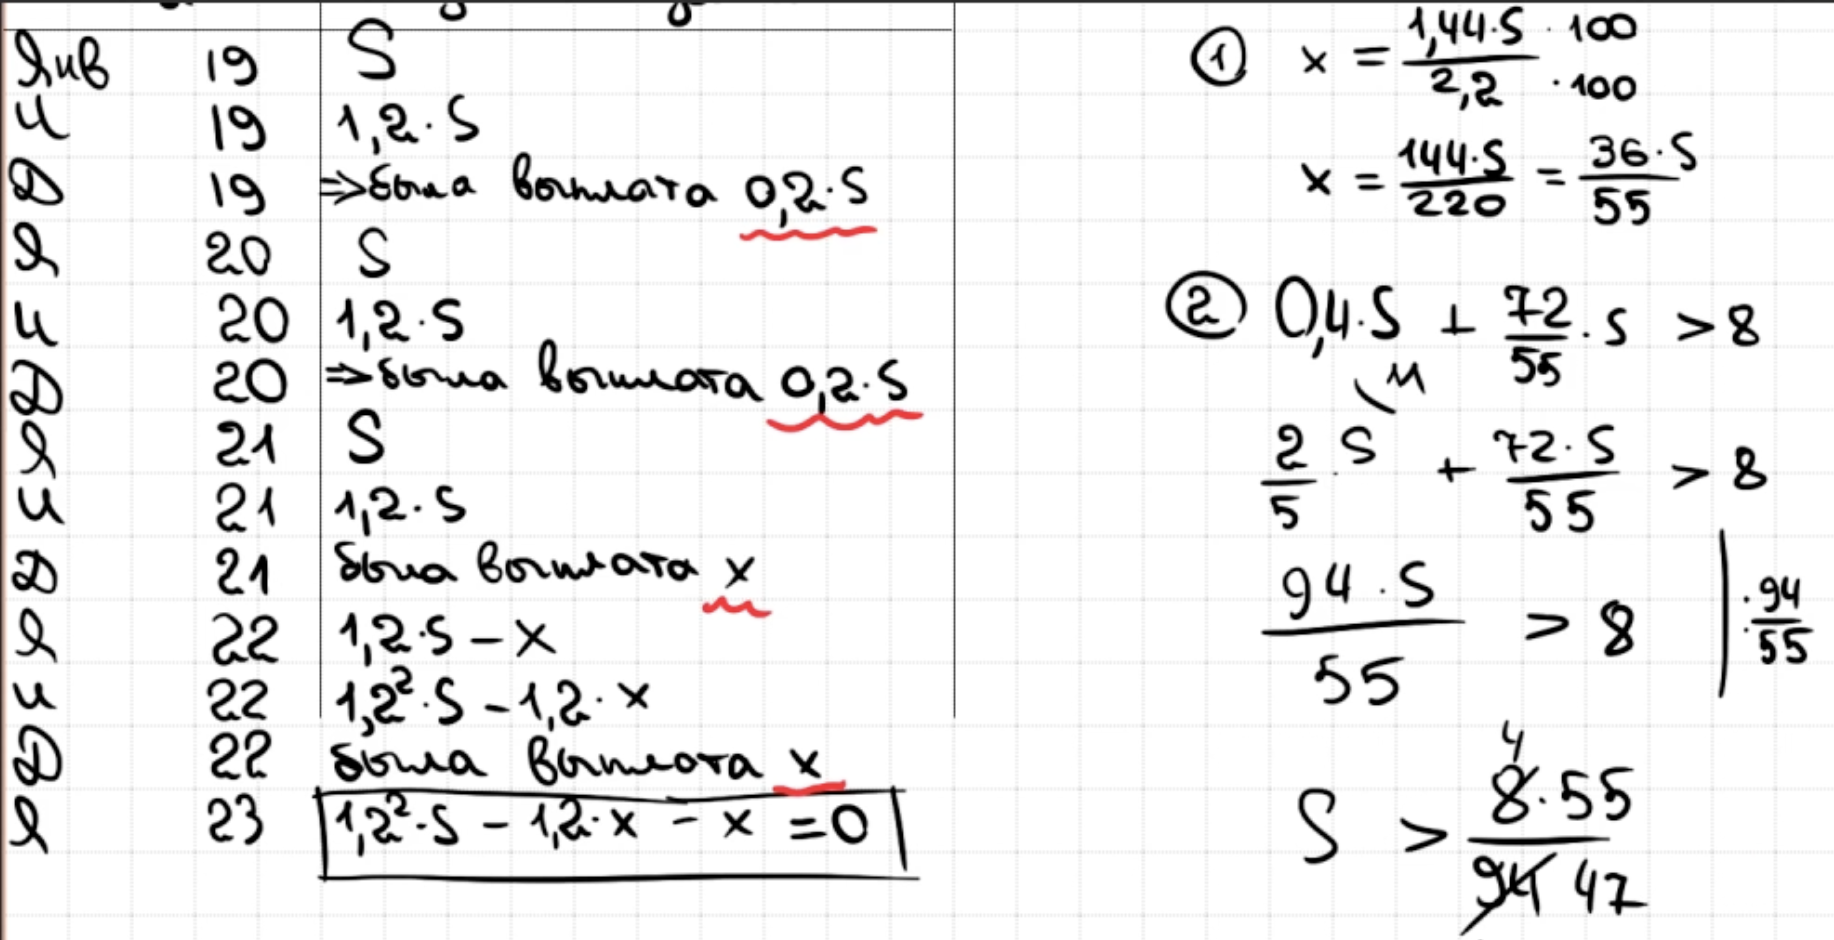 Янв 19 S
И 19 1,2·S
Д 19 ⇒была выплата 0,2·S
Я 20 S
И 20 1,2·S
Д 20 ⇒была выплата 0,2·S
Я 21 S
И 21 1,2·S
Д 21 была выплата x
Я 22 1,2·S – x
И 22 1,2²·S – 1,2·x
Д 22 была выплата x
Я 23 1,2²·S – 1,2·x – x = 0
① x = 1,44·S · 100 / 2,2 · 100
x = 144·S / 220 = 36·S / 55
② 0,4·S + 72/55 · S > 8
11
2/5 · S + 72·S / 55 > 8
94·S / 55 > 8 | : 94/55
4
S > 8·55 / 94 47